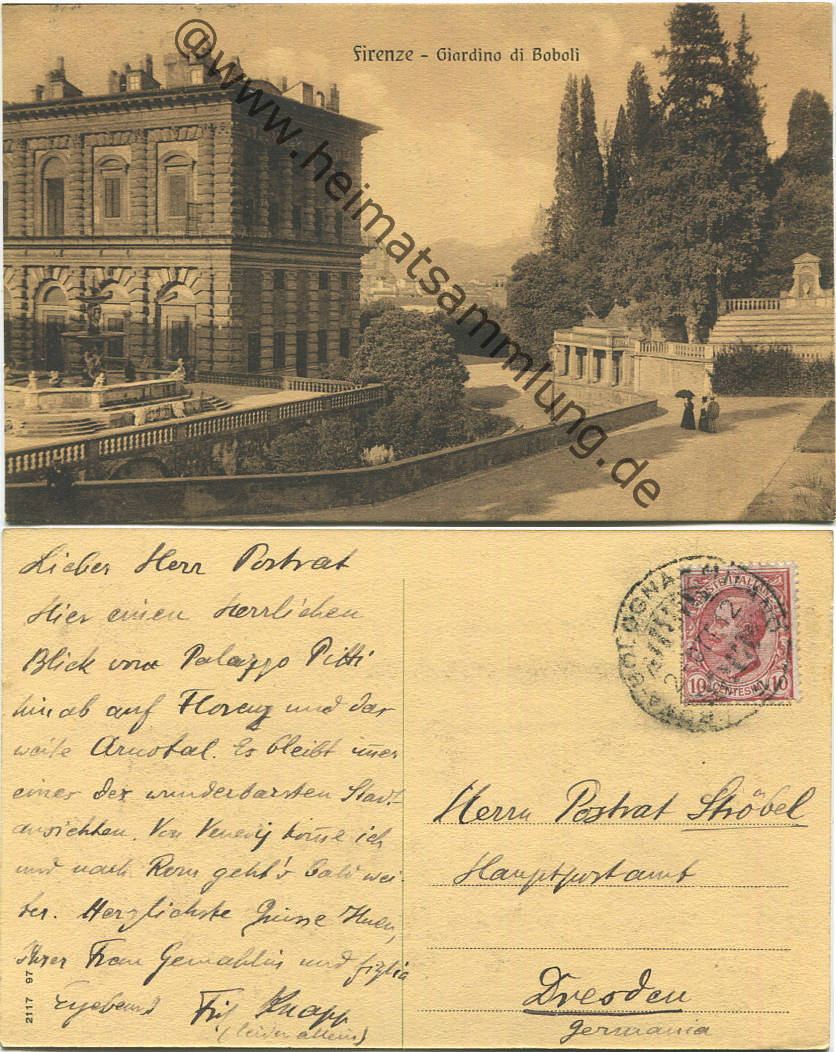 Firenze - Giardino di Boboli
@www.heimatsammlung.de
Lieber Herr Postrat
Hier einen herrlichen
Blick vom Palazzo Pitti
hinab auf Florenz und das
weite Arnotal. Es bleibt immer
eines der wunderbarsten Stadt-
ansichten. Von Venedig komme ich
und nach Rom geht's bald wei-
ter. Herzlichste Grüsse Ihnen,
Ihrer Frau Gemahlin und figlia
Ergebenst Fritz Knapp
(leider allein)
2117 97
BOLOGNA
POSTE ITALIANE
10 CENTESIMI 10
Herrn Postrat Ströbel
Hauptpostamt
Dresden
Germania